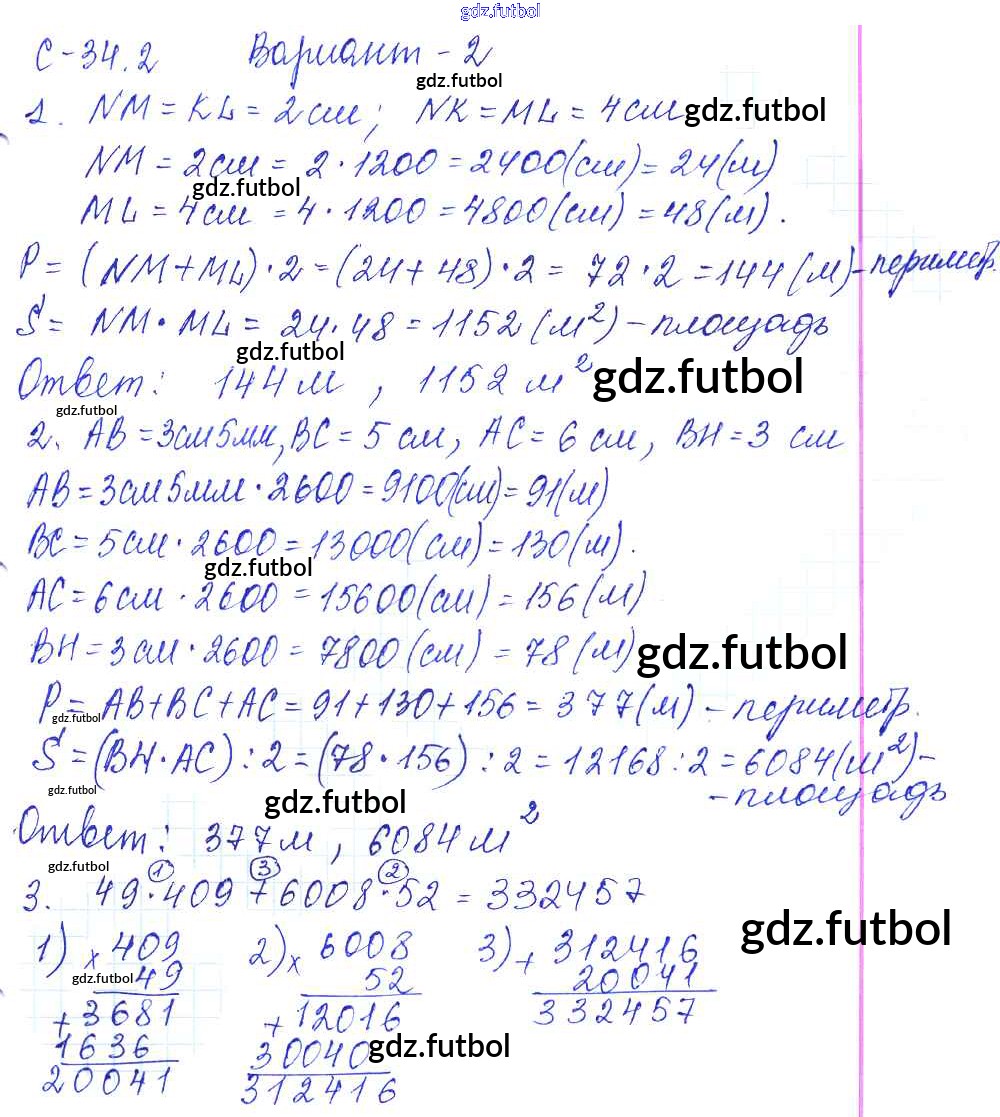 gdz.futbol
С-34.2 Вариант - 2
gdz.futbol
1. NM = KL = 2 см; NK = ML = 4 см gdz.futbol
NM = 2 см = 2 · 1200 = 2400 (см) = 24 (м)
gdz.futbol
ML = 4 см = 4 · 1200 = 4800 (см) = 48 (м).
P = (NM + ML) · 2 = (24 + 48) · 2 = 72 · 2 = 144 (м) - периметр.
S = NM · ML = 24 · 48 = 1152 (м²) - площадь
gdz.futbol
Ответ: 144 м, 1152 м² gdz.futbol
gdz.futbol
2. AB = 3 см 5 мм, BC = 5 см, AC = 6 см, BH = 3 см
AB = 3 см 5 мм · 2600 = 9100 (см) = 91 (м)
BC = 5 см · 2600 = 13000 (см) = 130 (м).
gdz.futbol
AC = 6 см · 2600 = 15600 (см) = 156 (м)
BH = 3 см · 2600 = 7800 (см) = 78 (м) gdz.futbol
P = AB + BC + AC = 91 + 130 + 156 = 377 (м) - периметр.
gdz.futbol
S = (BH · AC) : 2 = (78 · 156) : 2 = 12168 : 2 = 6084 (м²) -
gdz.futbol - площадь
gdz.futbol
Ответ: 377 м, 6084 м²
gdz.futbol 1 3 2
3. 49 · 409 + 6008 · 52 = 332457
gdz.futbol
1) × 409 2) × 6008 3) + 312416
gdz.futbol 49 52 20041
+ 3681 + 12016 332457
1636 30040 gdz.futbol
20041 312416